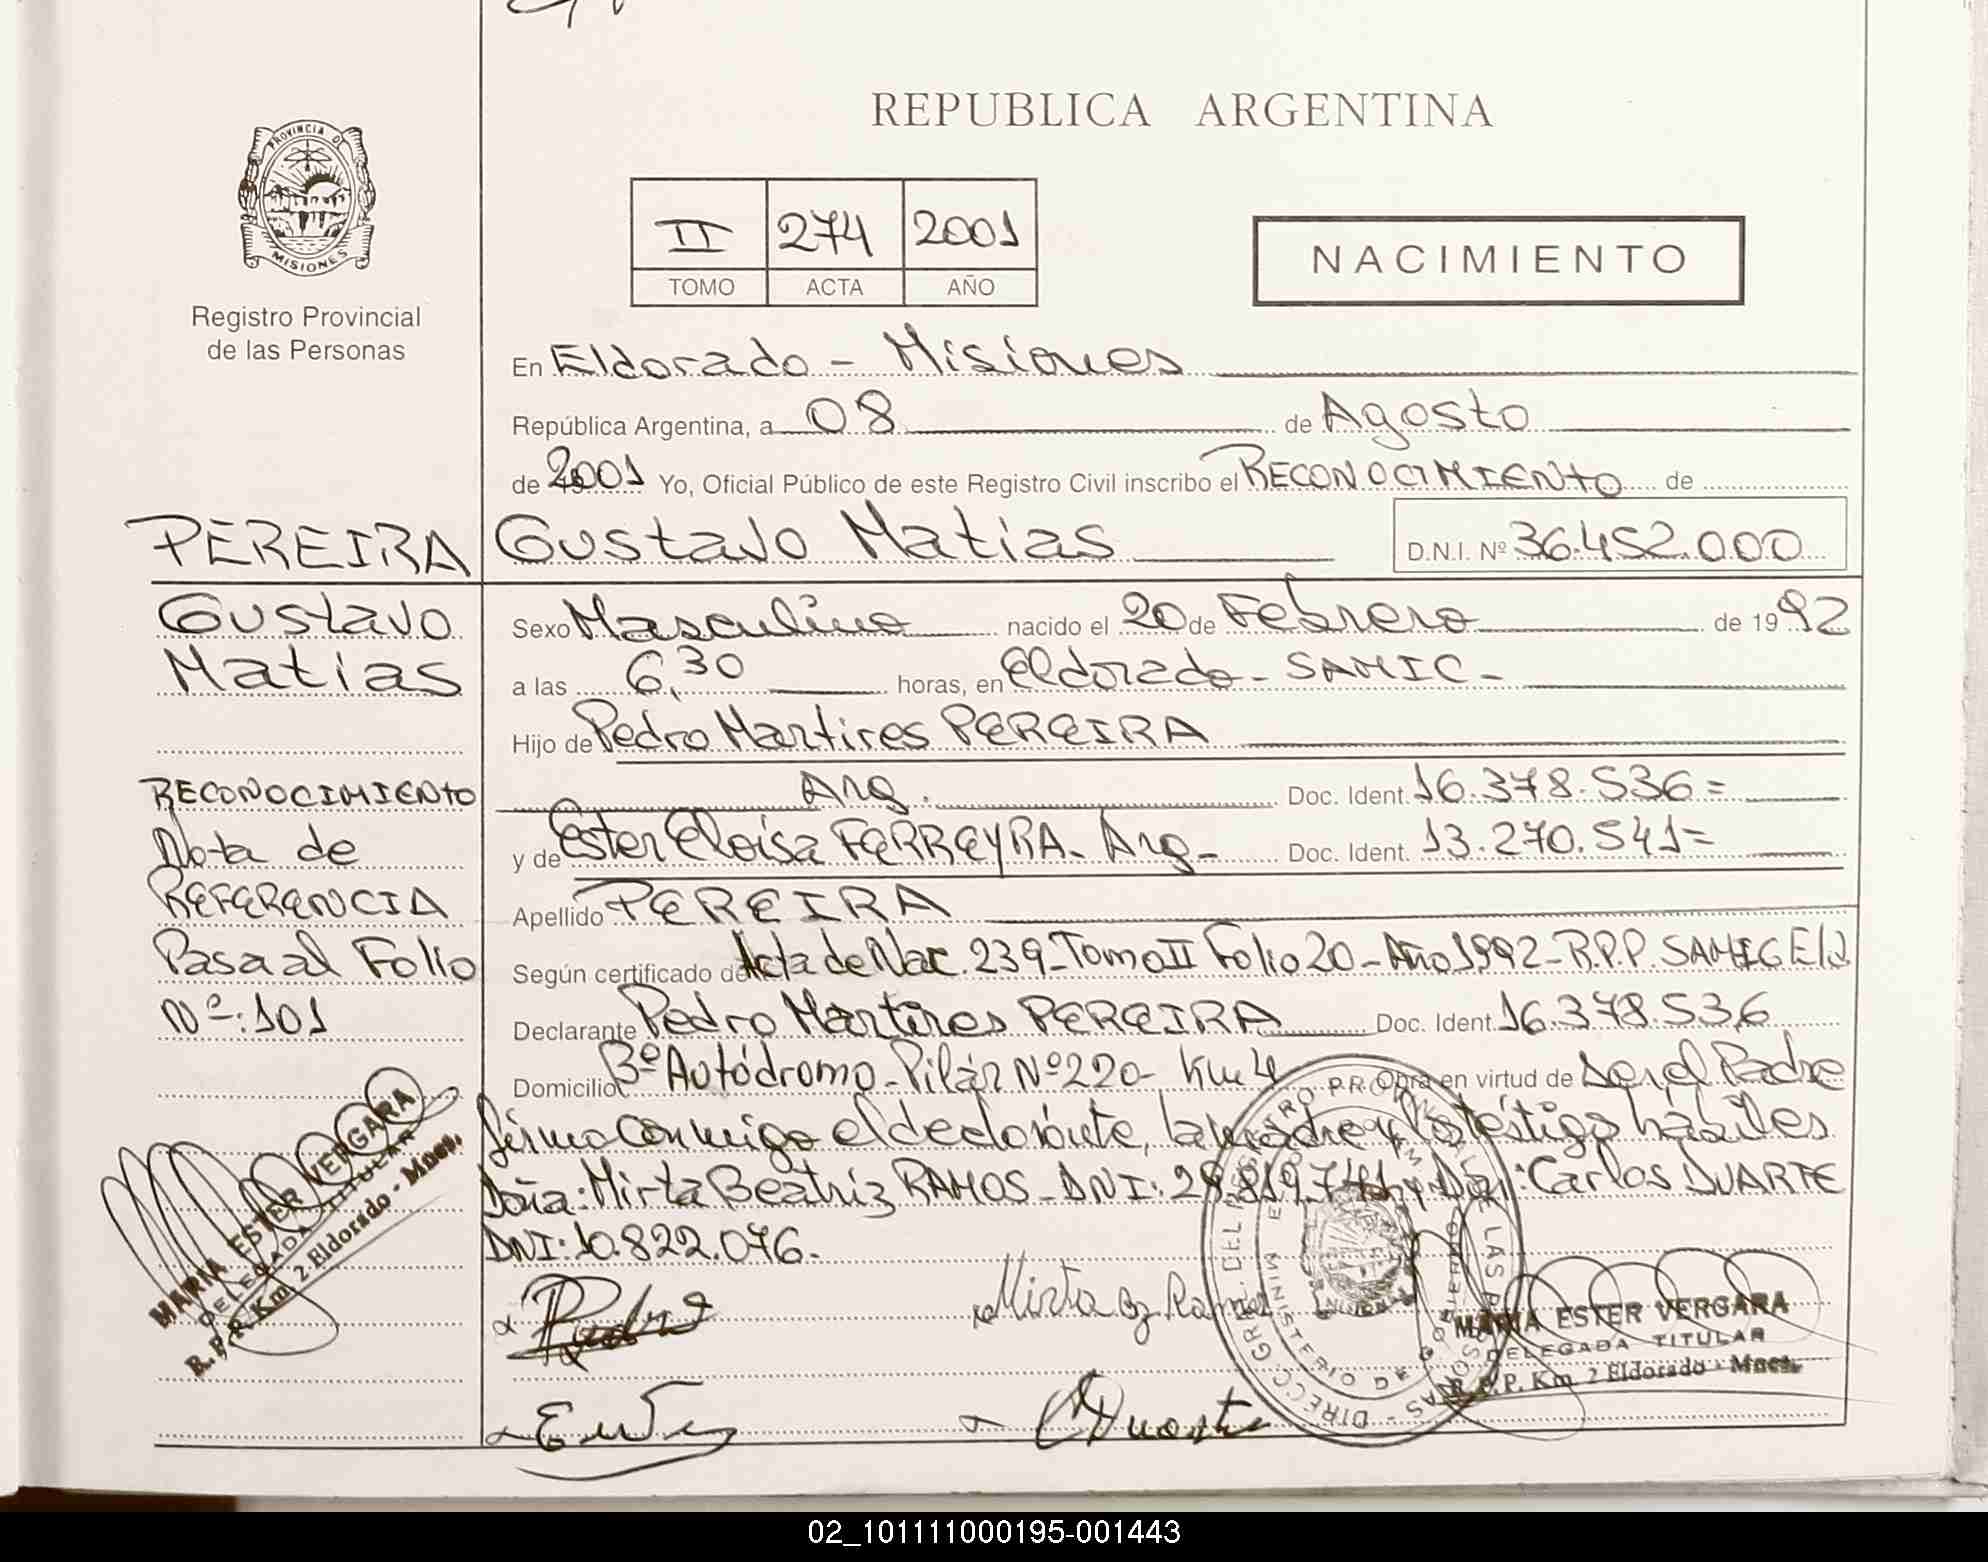 PROVINCIA DE
MISIONES
Registro Provincial
de las Personas
REPUBLICA ARGENTINA
II 274 2001
TOMO ACTA AÑO
NACIMIENTO
En Eldorado - Misiones
República Argentina, a 08 de Agosto
de 2001 Yo, Oficial Público de este Registro Civil inscribo el RECONOCIMIENTO de
PEREIRA Gustavo Matias D.N.I. Nº 36.452.000
Gustavo
Matias
RECONOCIMIENTO
Nota de
REFERENCIA
Pasa al Folio
Nº:101
MARIA ESTER VERGARA
DELEGADA TITULAR
R.P.P. Km 2 Eldorado - Mnes.
Sexo Masculino nacido el 20 de Febrero de 1992
a las 6,30 horas, en Eldorado - SAMIC -
Hijo de Pedro Martires PEREIRA
Arg. Doc. Ident. 16.378.536=
y de Ester Eloisa FERREYRA - Arg - Doc. Ident. 13.270.541=
Apellido PEREIRA
Según certificado de Acta de Nac. 239 - Tomo II Folio 20 - Año 1992 - R.P.P. SAMIC Eld
Declarante Pedro Martires PEREIRA Doc. Ident. 16.378.536
Domicilio Bº Autódromo - Pilár Nº 220 - Km 4 Obra en virtud de Ser el Padre
firma conmigo el declarante, la madre y los testigo hábiles
Doña: Mirta Beatriz RAMOS - DNI: y Don: Carlos DUARTE
DNI: 10.822.076.
Mirta Bz Ramos
MARIA ESTER VERGARA
DELEGADA TITULAR
R.P.P. Km 2 Eldorado - Mnes.
CDuarte
02_101111000195-001443